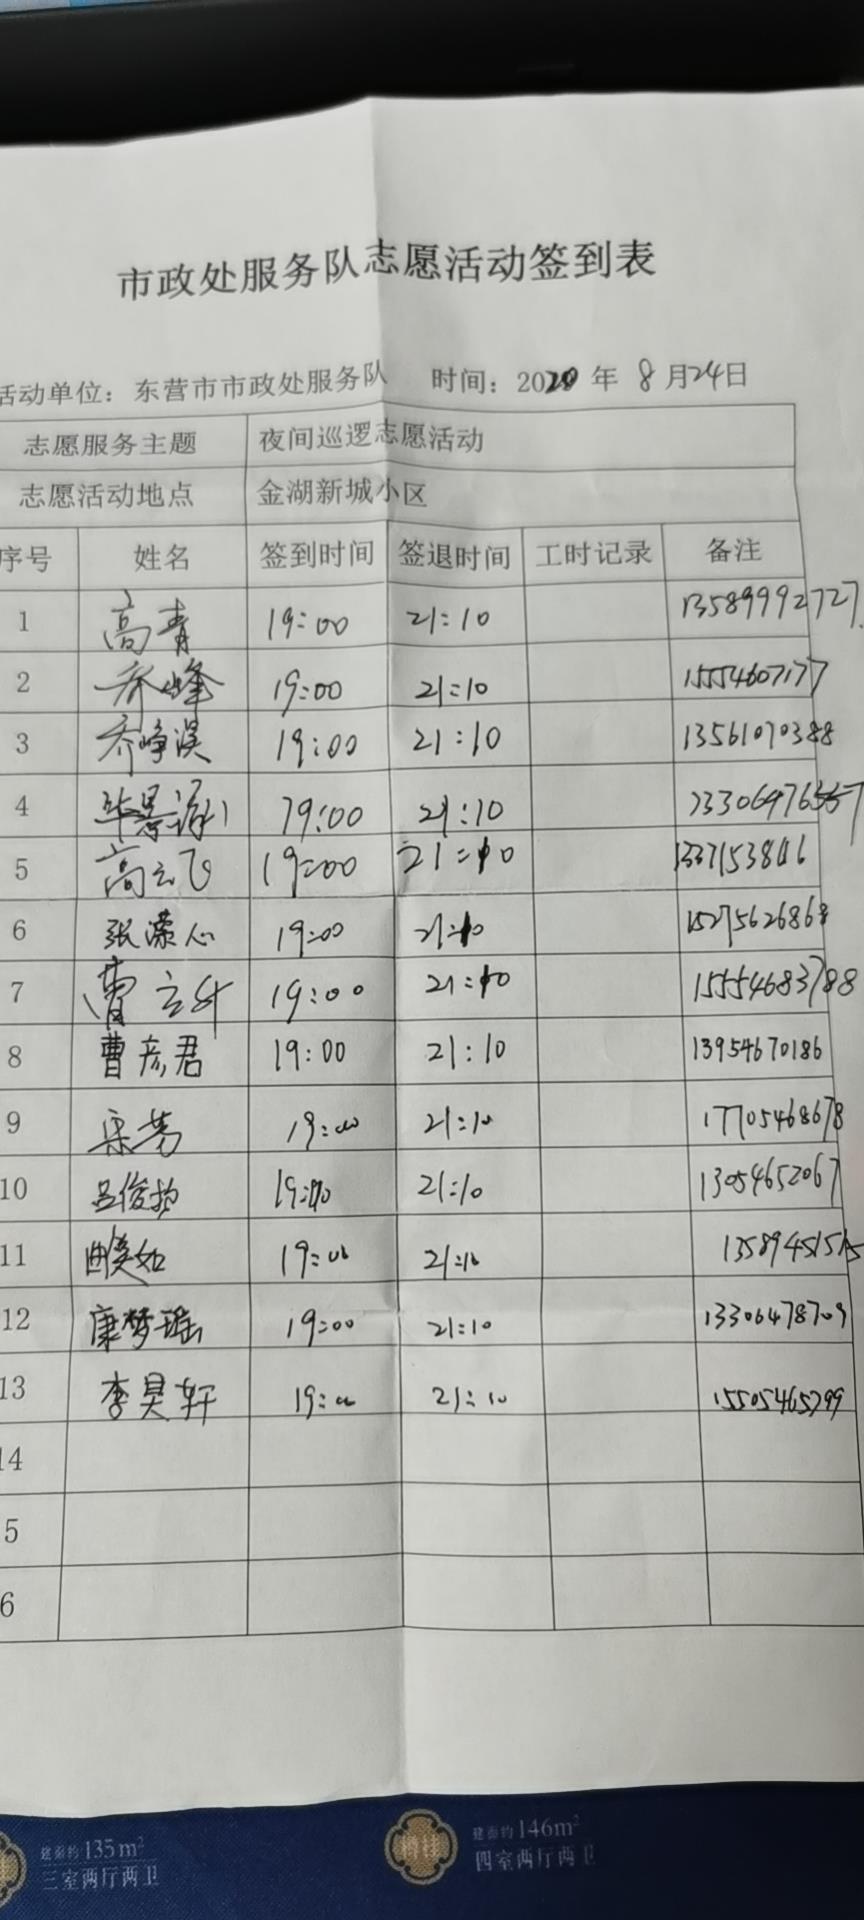 市政处服务队志愿活动签到表
活动单位：东营市市政处服务队 时间：2020年 8月24日
志愿服务主题 夜间巡逻志愿活动
志愿活动地点 金湖新城小区
序号 姓名 签到时间 签退时间 工时记录 备注
1 高青 19:00 21:10 13589992727
2 乔峰 19:00 21:10 15554607177
3 乔峥淏 19:00 21:10 13561070388
4 19:00 21:10
5 高云飞 19:00 21:10
6 张潆心 19:00 21:10 15275626868
7 曹立 19:00 21:10 15554683788
8 曹彦君 19:00 21:10 13954670186
9 19:00 21:10 17705468678
10 吕俊 19:00 21:10 13054652067
11 曲 19:00 21:10
12 康梦瑶 19:00 21:10 13306478709
13 李昊轩 19:00 21:10 15505465799
14
5
6
建面约135m²
三室两厅两卫
建面约146m²
四室两厅两卫